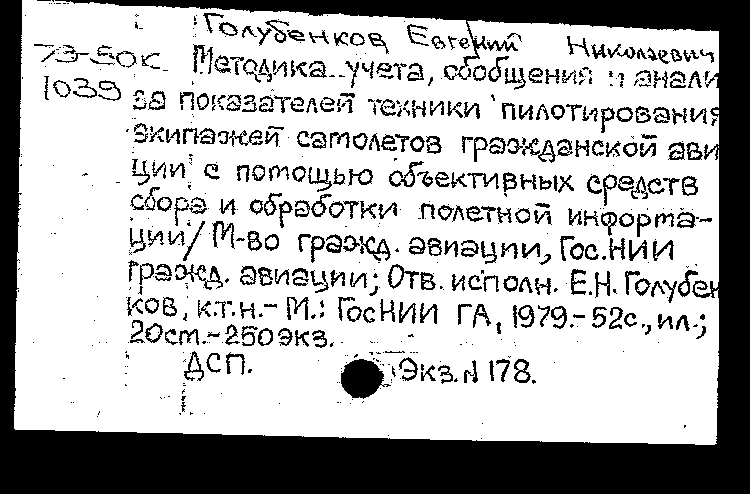 Голубенков Евгений Николаевич
79-50к Методика учета, обобщения и анали
1039 за показателей техники пилотирования
экипажей самолетов гражданской ави
ции с помощью объективных средств
сбора и обработки полетной информа-
ции/М-во гражд. авиации, Гос.НИИ
гражд. авиации; Отв. исполн. Е.Н. Голубен
ков, к.т.н.- М.: ГосНИИ ГА, 1979.-52с., ил.;
20см.-250экз.
ДСП. Экз.№ 178.